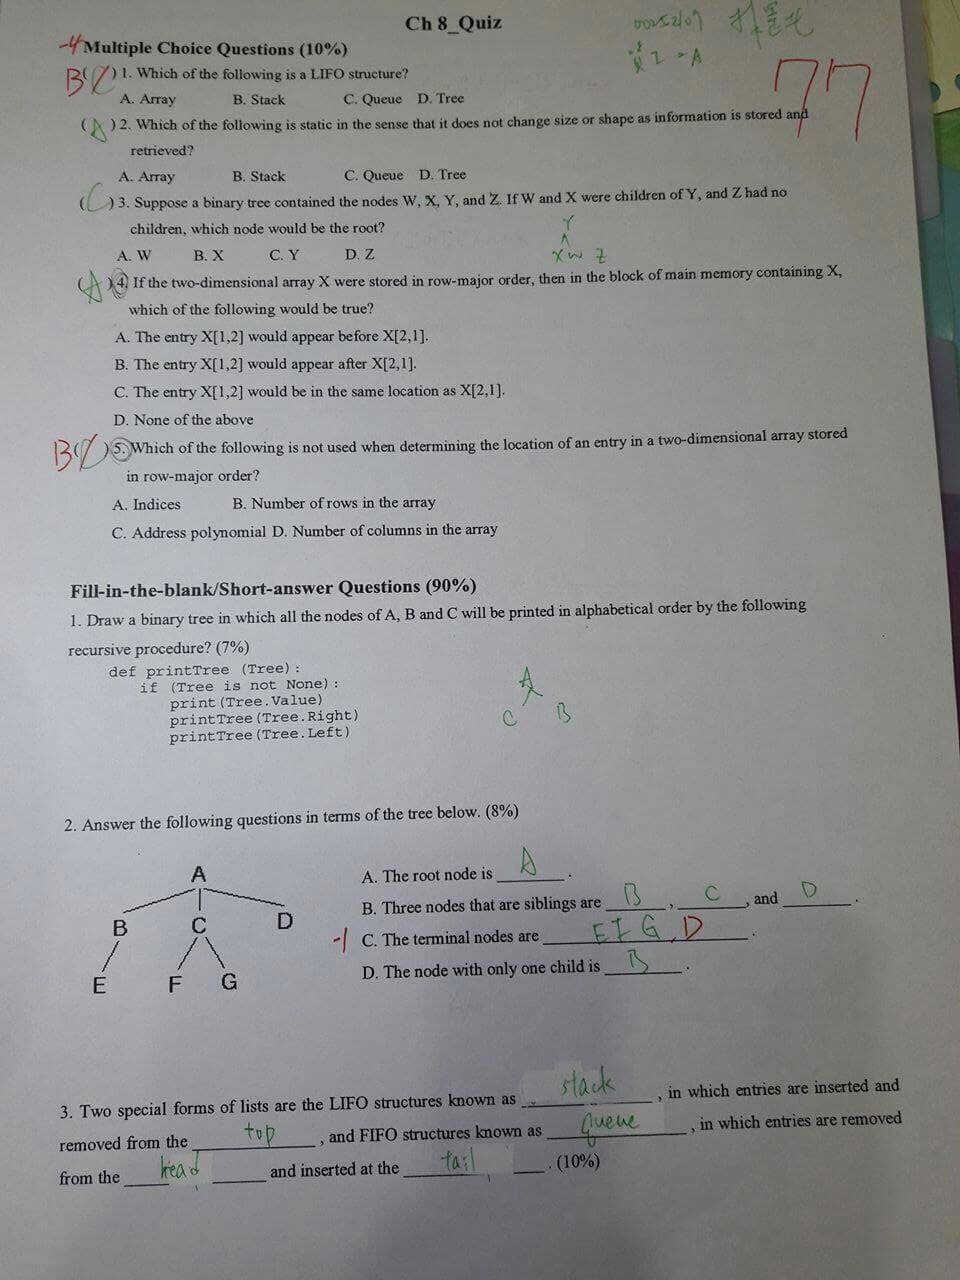 Ch 8_Quiz
-4 Multiple Choice Questions (10%)
77
B ( ) 1. Which of the following is a LIFO structure?
A. Array B. Stack C. Queue D. Tree
(A) 2. Which of the following is static in the sense that it does not change size or shape as information is stored and
retrieved?
A. Array B. Stack C. Queue D. Tree
(C) 3. Suppose a binary tree contained the nodes W, X, Y, and Z. If W and X were children of Y, and Z had no
children, which node would be the root?
Y
X W Z
A. W B. X C. Y D. Z
(A) 4. If the two-dimensional array X were stored in row-major order, then in the block of main memory containing X,
which of the following would be true?
A. The entry X[1,2] would appear before X[2,1].
B. The entry X[1,2] would appear after X[2,1].
C. The entry X[1,2] would be in the same location as X[2,1].
D. None of the above
B ( ) 5. Which of the following is not used when determining the location of an entry in a two-dimensional array stored
in row-major order?
A. Indices B. Number of rows in the array
C. Address polynomial D. Number of columns in the array
Fill-in-the-blank/Short-answer Questions (90%)
1. Draw a binary tree in which all the nodes of A, B and C will be printed in alphabetical order by the following
recursive procedure? (7%)
def printTree (Tree):
if (Tree is not None):
print(Tree.Value)
printTree(Tree.Right)
printTree(Tree.Left)
A
C B
2. Answer the following questions in terms of the tree below. (8%)
A
B C D
E F G
A. The root node is A.
B. Three nodes that are siblings are B, C, and D.
-1 C. The terminal nodes are E F G, D.
D. The node with only one child is B.
3. Two special forms of lists are the LIFO structures known as stack, in which entries are inserted and
removed from the top, and FIFO structures known as queue, in which entries are removed
from the head and inserted at the tail. (10%)